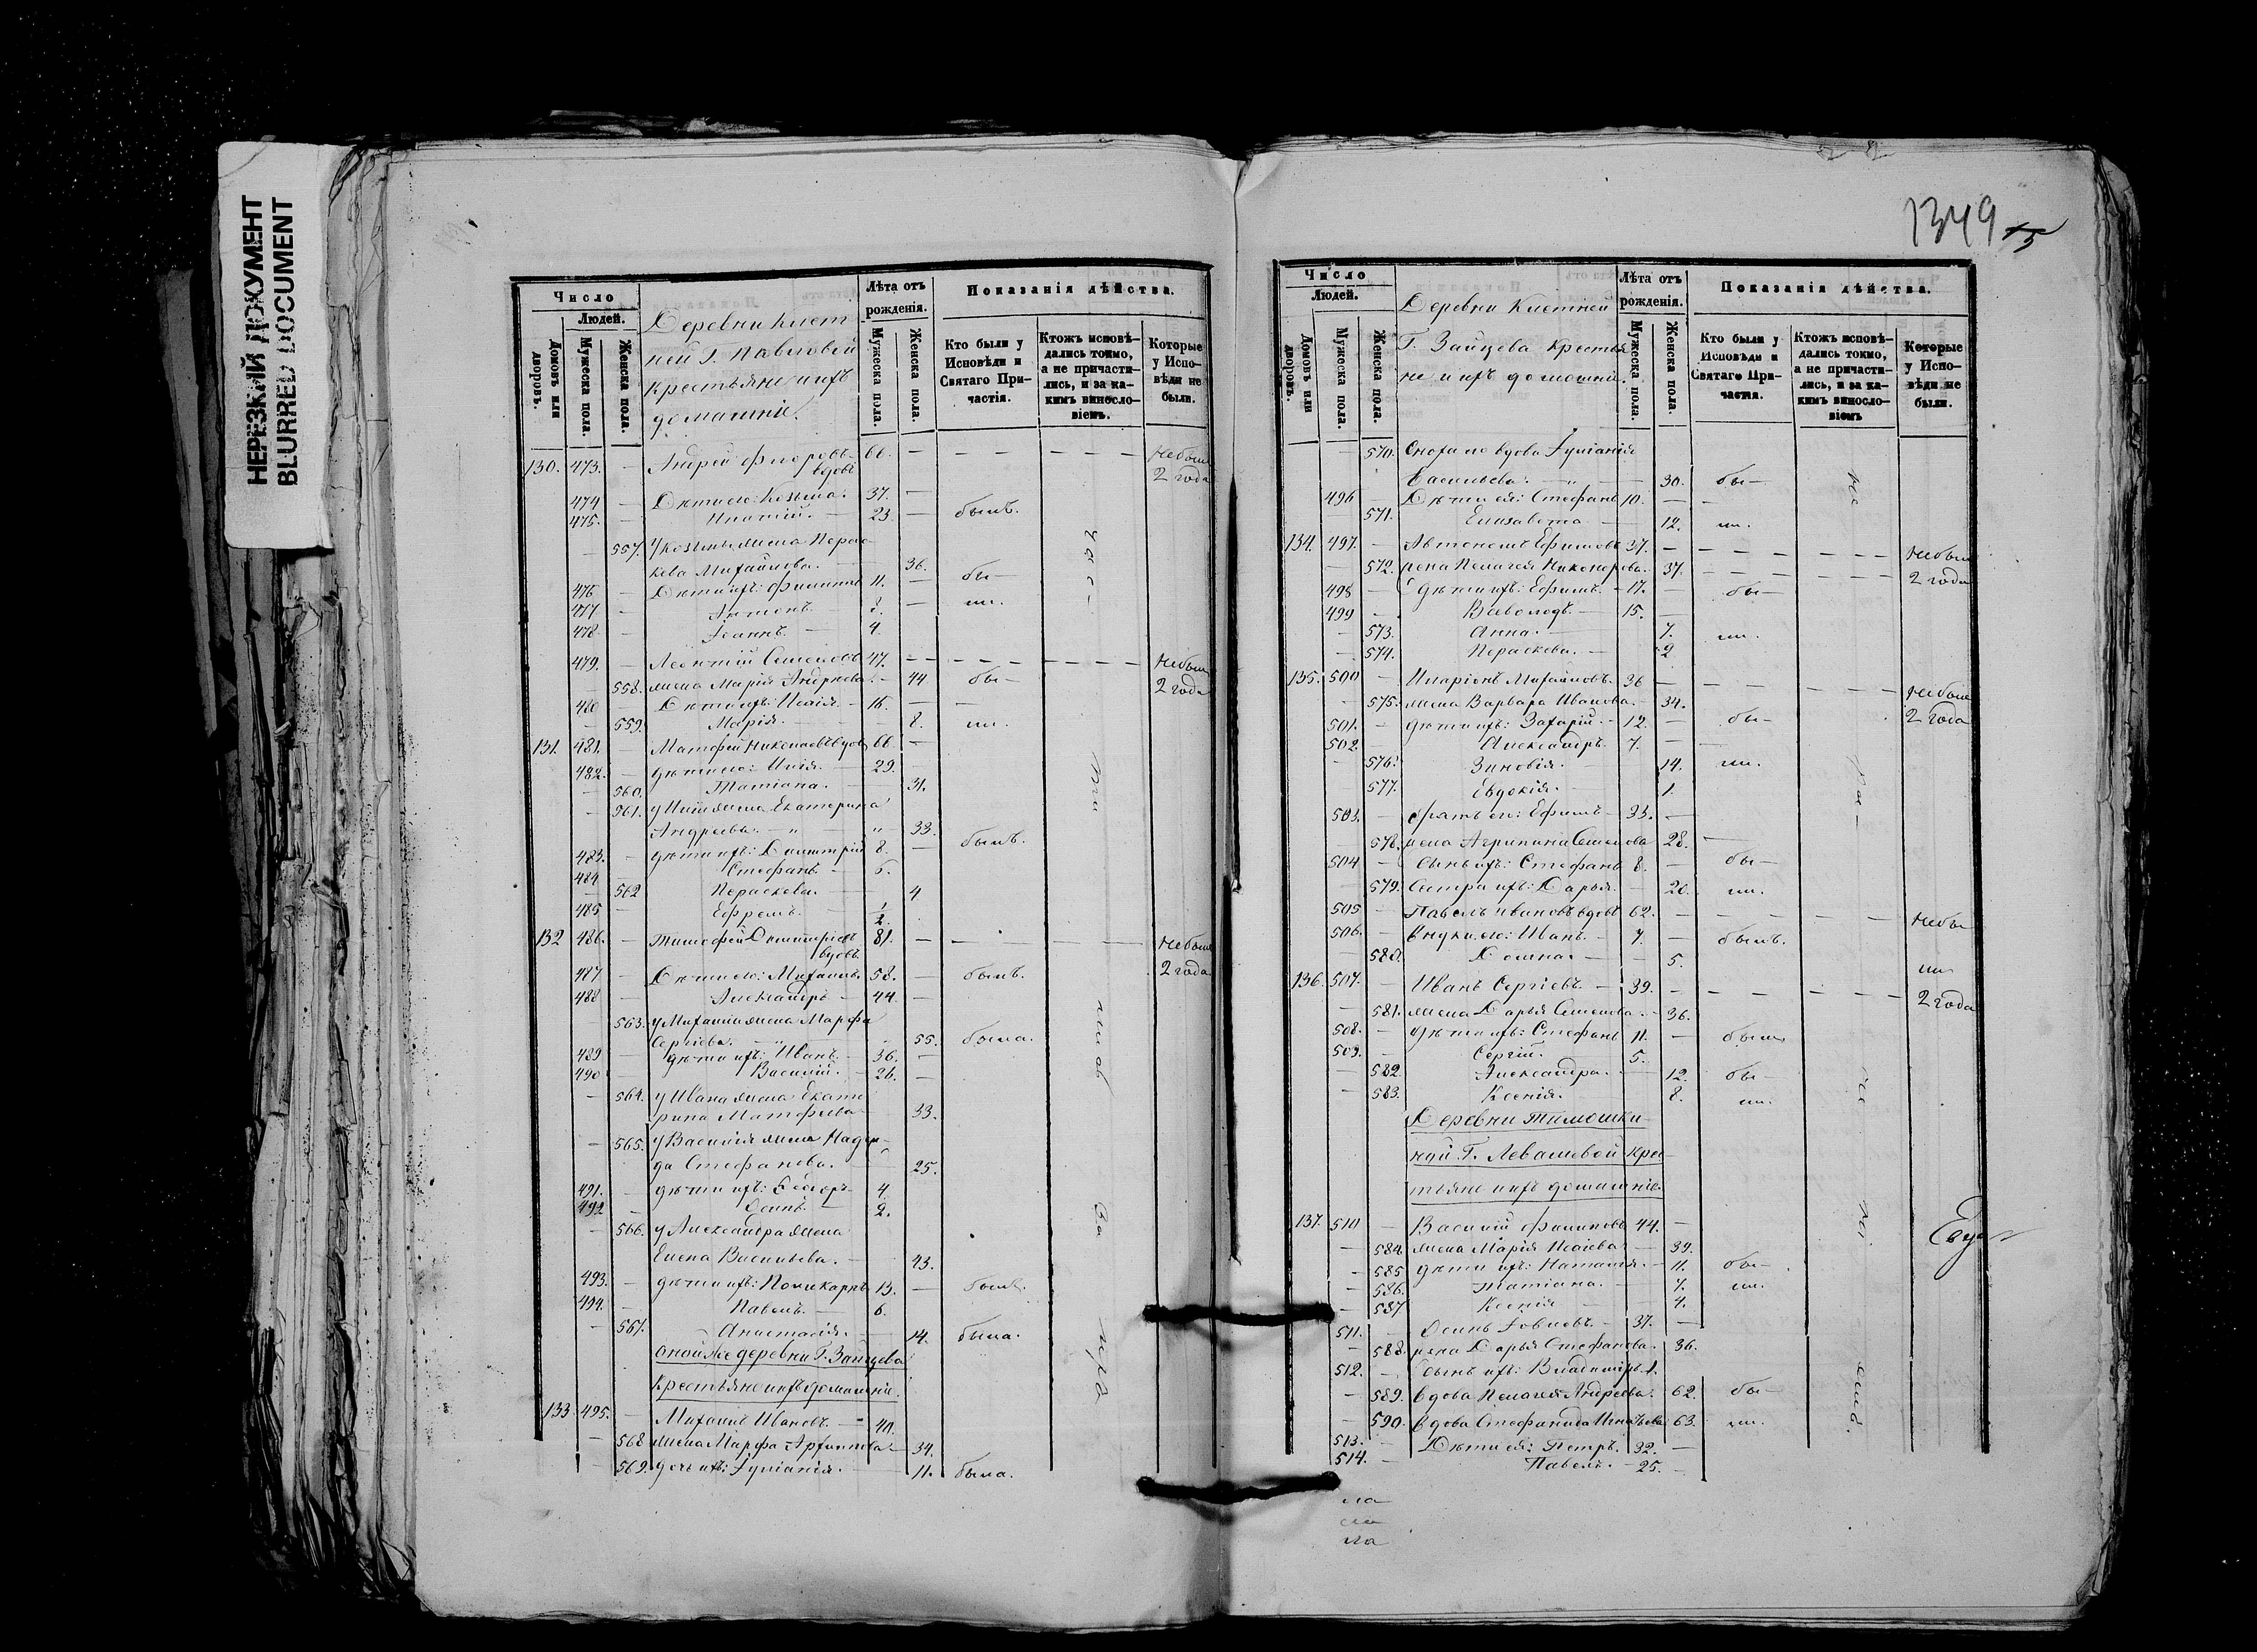 НЕРЕЗКИЙ ДОКУМЕНТ
BLURRED DOCUMENT
1349
Число
Людей.
Домовъ или дворовъ.
Мужеска пола.
Женска пола.
Деревни Клет
ней Г. Павловой
крестьяне и ихъ
домашніе.
Лѣта отъ рожденія.
Мужеска пола.
Женска пола.
Показанія дѣйства.
Кто были у Исповѣди и Святаго Причастія.
Ктожъ исповѣдались токмо, а не причастились, и за какимъ винословіемъ.
Которые у Исповѣди не были.
130. 473. — Андрей Флоровъ вдовъ 60. — — — — небыл 2 года
474 — Дѣти его: Козьма. 37. —
475. — Игнатій. — 23. — былъ.
— 557. у Козьмы жена Парас
кева Михайлова. — 36.
476 — Дѣти ихъ: Филиппъ 11. — бы—
477 — Антонъ. — 8. — ли.
478 — Іоаннъ. — 4.
479. — Леонтій Семеновъ 47. — — — — небыл
— 558. жена Марія Андреева. — 44 бы— 2 года
480 — Дѣти ихъ: Исаія. — 16. —
— 559. Марія. — 8. ли.
131. 481. — Матфей Николаевъ вдовъ 66. —
482. — дѣти его: Илія. 29. —
— 560. Татіана. — 31.
— 561. у Иліи жена Екатерина
Андреева. — " — " 33.
483. — дѣти ихъ: Димитрій 8. — былъ.
484 — Стефанъ — 6.
— 562 Параскева. — 4
485 — Ефремъ. — 1/2.
132 486. — Тимофей Димитріевъ вдовъ 81. — — — небыл
487 — Дѣти его: Михаилъ 58. — былъ. 2 года.
488 — Александръ — 44. —
— 563. у Михаила жена Марфа
Сергіева. — " — 55. была.
489 — дѣти ихъ: Иванъ. — 36. —
490 — Василій. — 26. —
— 564. у Ивана жена Екате
рина Матфеева — 33.
— 565. у Василія жена Надеж
да Стефанова. — 25.
491. — дѣти ихъ: Ѳеодоръ 4.
492 — Осипъ — 2.
— 566. у Александра жена
Елена Васильева. — 43.
493. — дѣти ихъ: Поликарпъ 13. — былъ.
494. — Павелъ. — 6.
— 567. Анастасія. — 14. была.
оной же деревни Г. Зайцева
крестьяне и ихъ домашніе.
133 495. — Михаилъ Ивановъ. — 40.
— 568 жена Марфа Архиппова — 34.
— 569. дочь ихъ: Іуліанія. — 11. была.
Число
Людей.
Домовъ или дворовъ.
Мужеска пола.
Женска пола.
Деревни Клетней
Г. Зайцева крестья
не и ихъ домашніе.
Лѣта отъ рожденія.
Мужеска пола.
Женска пола.
Показанія дѣйства.
Кто были у Исповѣди и Святаго Причастія.
Ктожъ исповѣдались токмо, а не причастились, и за какимъ винословіемъ
Которые у Исповѣди не были.
— 570. Сноха по вдова Іуліанія
Васильева. — " — 30. бы—
496 — Дѣти ея: Стефанъ 10. —
571. Елизавета — 12. ли.
134. 497. — Автономъ Ефимовъ 37. — — — — небыл
— 572. жена Пелагея Никонорова. 37. — — — — 2 года
498 — Дѣти ихъ: Ефимъ. — 17. — бы—
499 — Всеволодъ. — 15.
— 573. Анна. — 7. ли.
— 574. Параскева. — 2
135. 500 — Иларіонъ Михайловъ. 36 — — — — небыл
— 575. жена Варвара Иванова. — 34.
501. — дѣти ихъ: Захарій. — 12. — бы— 2 года
502. Александръ 7. —
— 576. Зиновія. — 14. ли.
577. Евдокія. — 1.
503. — братъ его: Ефимъ — 33. —
— 578. жена Агрипина Семенова 28. —
504 — сынъ ихъ: Стефанъ 8. — бы—
— 579. Сестра ихъ: Дарья. — 20. ли.
505 — Павелъ Ивановъ вдовъ 62. — — — — небы
506. — внуки его: Иванъ. — 7. — былъ.
— 580. Домна. — 5. ли
136. 507. — Иванъ Сергіевъ. — 39. — — — — 2 года
— 581. жена Дарья Семенова. — 36.
508. — Дѣти ихъ: Стефанъ 11. — былъ
509. — Сергій. 5.
— 582. Александра. — 12. бы—
— 583. Ксенія. — 8. ли.
Деревни Тимошки
ной Г. Левашовой крес
тьяне и ихъ домашніе.
137. 510 — Василій Филиповъ 44. —
— 584. жена Марія Исаіева — 39.
— 585 дѣти ихъ: Наталія. — 11. бы—
— 586. Татіана. — 7. ли.
— 587 Ксенія — 4.
511. — Осипъ Іовлевъ. — 37. —
— 588. жена Дарья Стефанова. 36.
512. — сынъ ихъ: Владиміръ. 1.
— 589. вдова Пелагея Андреева. 62. бы—
— 590. вдова Стефанида Игнатьева 63. ли.
513. — Дѣти ея: Петръ. 32. —
514. — Павелъ. — 25. —
ла
ли
ла